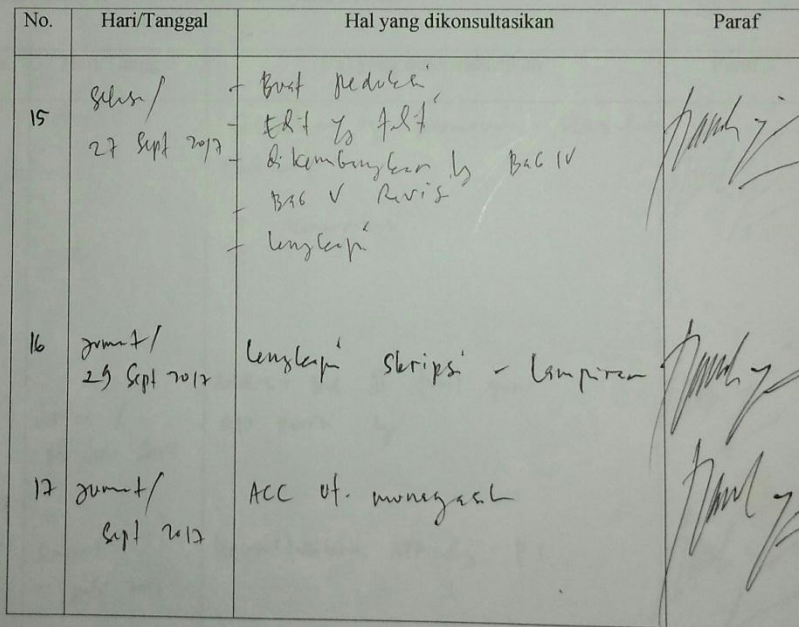 No. Hari/Tanggal Hal yang dikonsultasikan Paraf
15 Selasa/
27 Sept 2017
- Buat
- Edit yg
- dikembangkan BAB IV
- BAB V Revisi
- lengkapi
16 Jumat/
29 Sept 2017
lengkapi skripsi - lampiran
17 Jumat/
Sept 2017
ACC ut. munaqasah